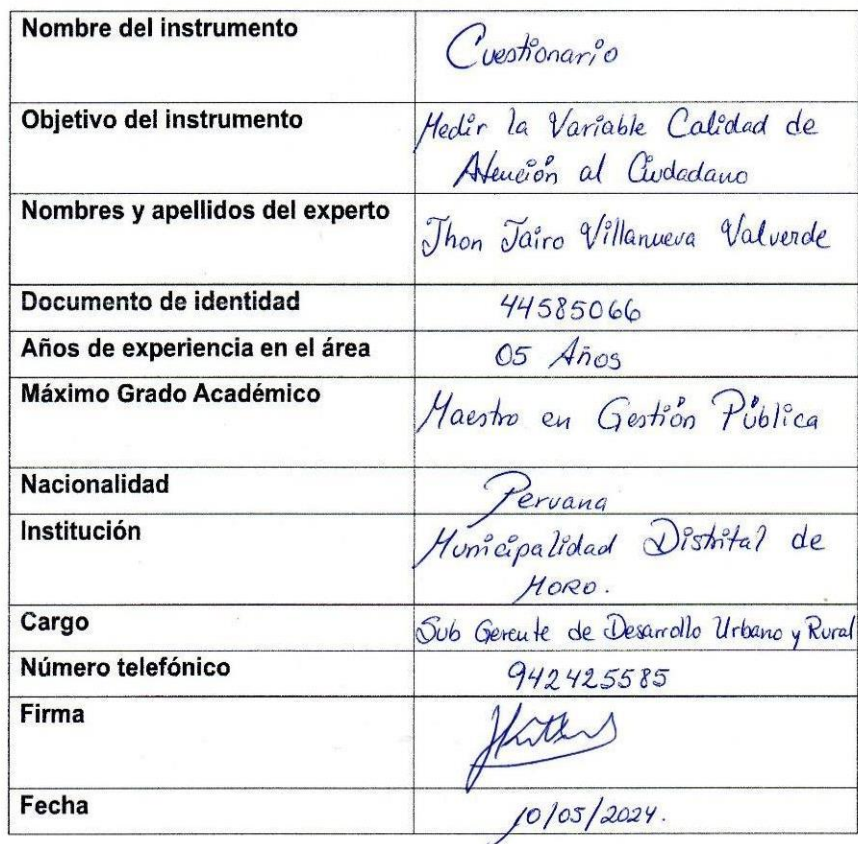 Nombre del instrumento
Cuestionario
Objetivo del instrumento
Medir la Variable Calidad de
Atención al Ciudadano
Nombres y apellidos del experto
Jhon Jairo Villanueva Valverde
Documento de identidad
44585066
Años de experiencia en el área
05 Años
Máximo Grado Académico
Maestro en Gestión Pública
Nacionalidad
Peruana
Institución
Municipalidad Distrital de
MORO.
Cargo
Sub Gerente de Desarrollo Urbano y Rural
Número telefónico
942425585
Firma
Fecha
10/05/2024.